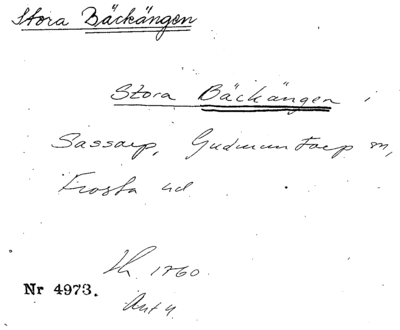 Stora Bäckängen
Stora Bäckängen i
Sassarp, Gudmuntorp m,
Frosta hd
Lh 1760.
Nr 4973.
Ant 4